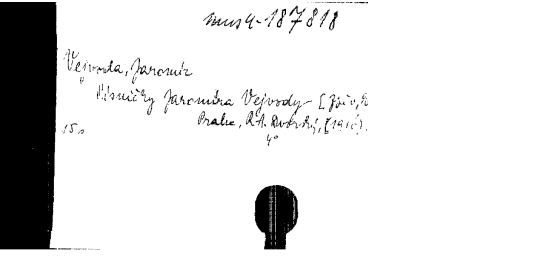 mus 4-187818
Vejvoda, Jaromír
Písničky Jaromíra Vejvody
Praha, R.A. Dvorský,
15 s
4°